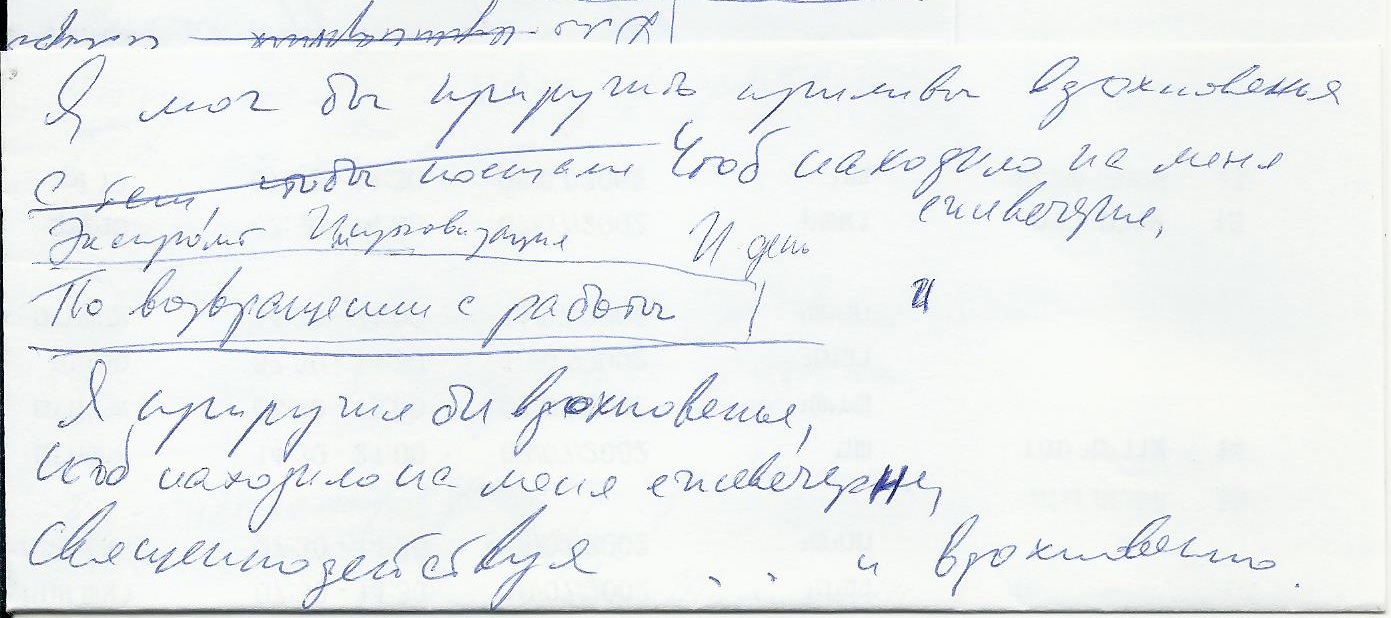 Я мог бы приручить приливы вдохновенья
С тем, чтобы Чтоб находило на меня
ежевечерне,
Экспромт Импровизация И день
По возвращении с работы и
Я приручил бы вдохновенья,
Чтоб находило на меня ежевечерне,
Священнодействуя . . . и вдохновенно.